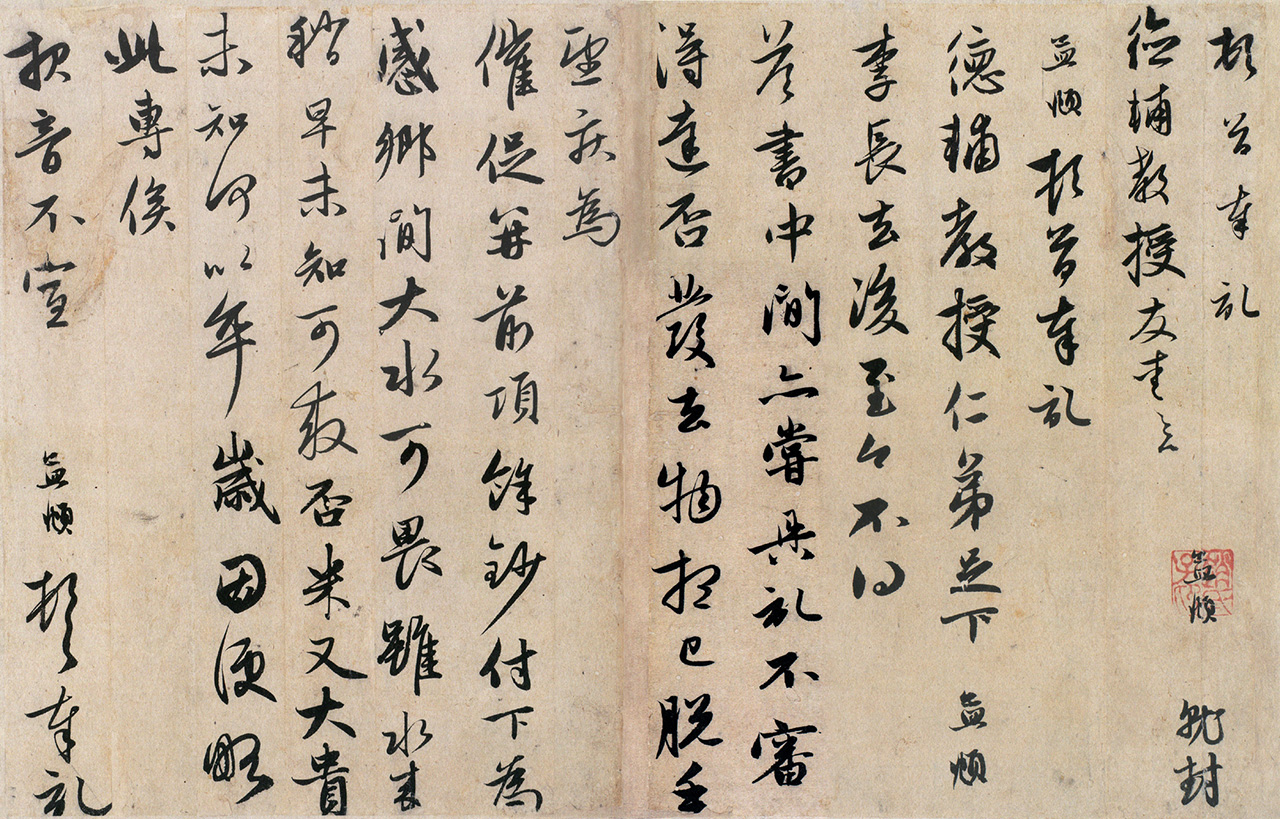 頓首奉記 孟頫 就封
德輔教授友愛
孟頫頓首奉記
德輔教授仁弟足下 孟頫
李長去後至今不得
答書中間亦嘗具記不審
得達否發去物想已脫手
望疾為
催促并前項餘鈔付下為
感鄉間大水可畏雖水來
稍早未知可救否米又大貴
未知何以年歲因便略
此專俟
報音不宣 孟頫頓首奉記